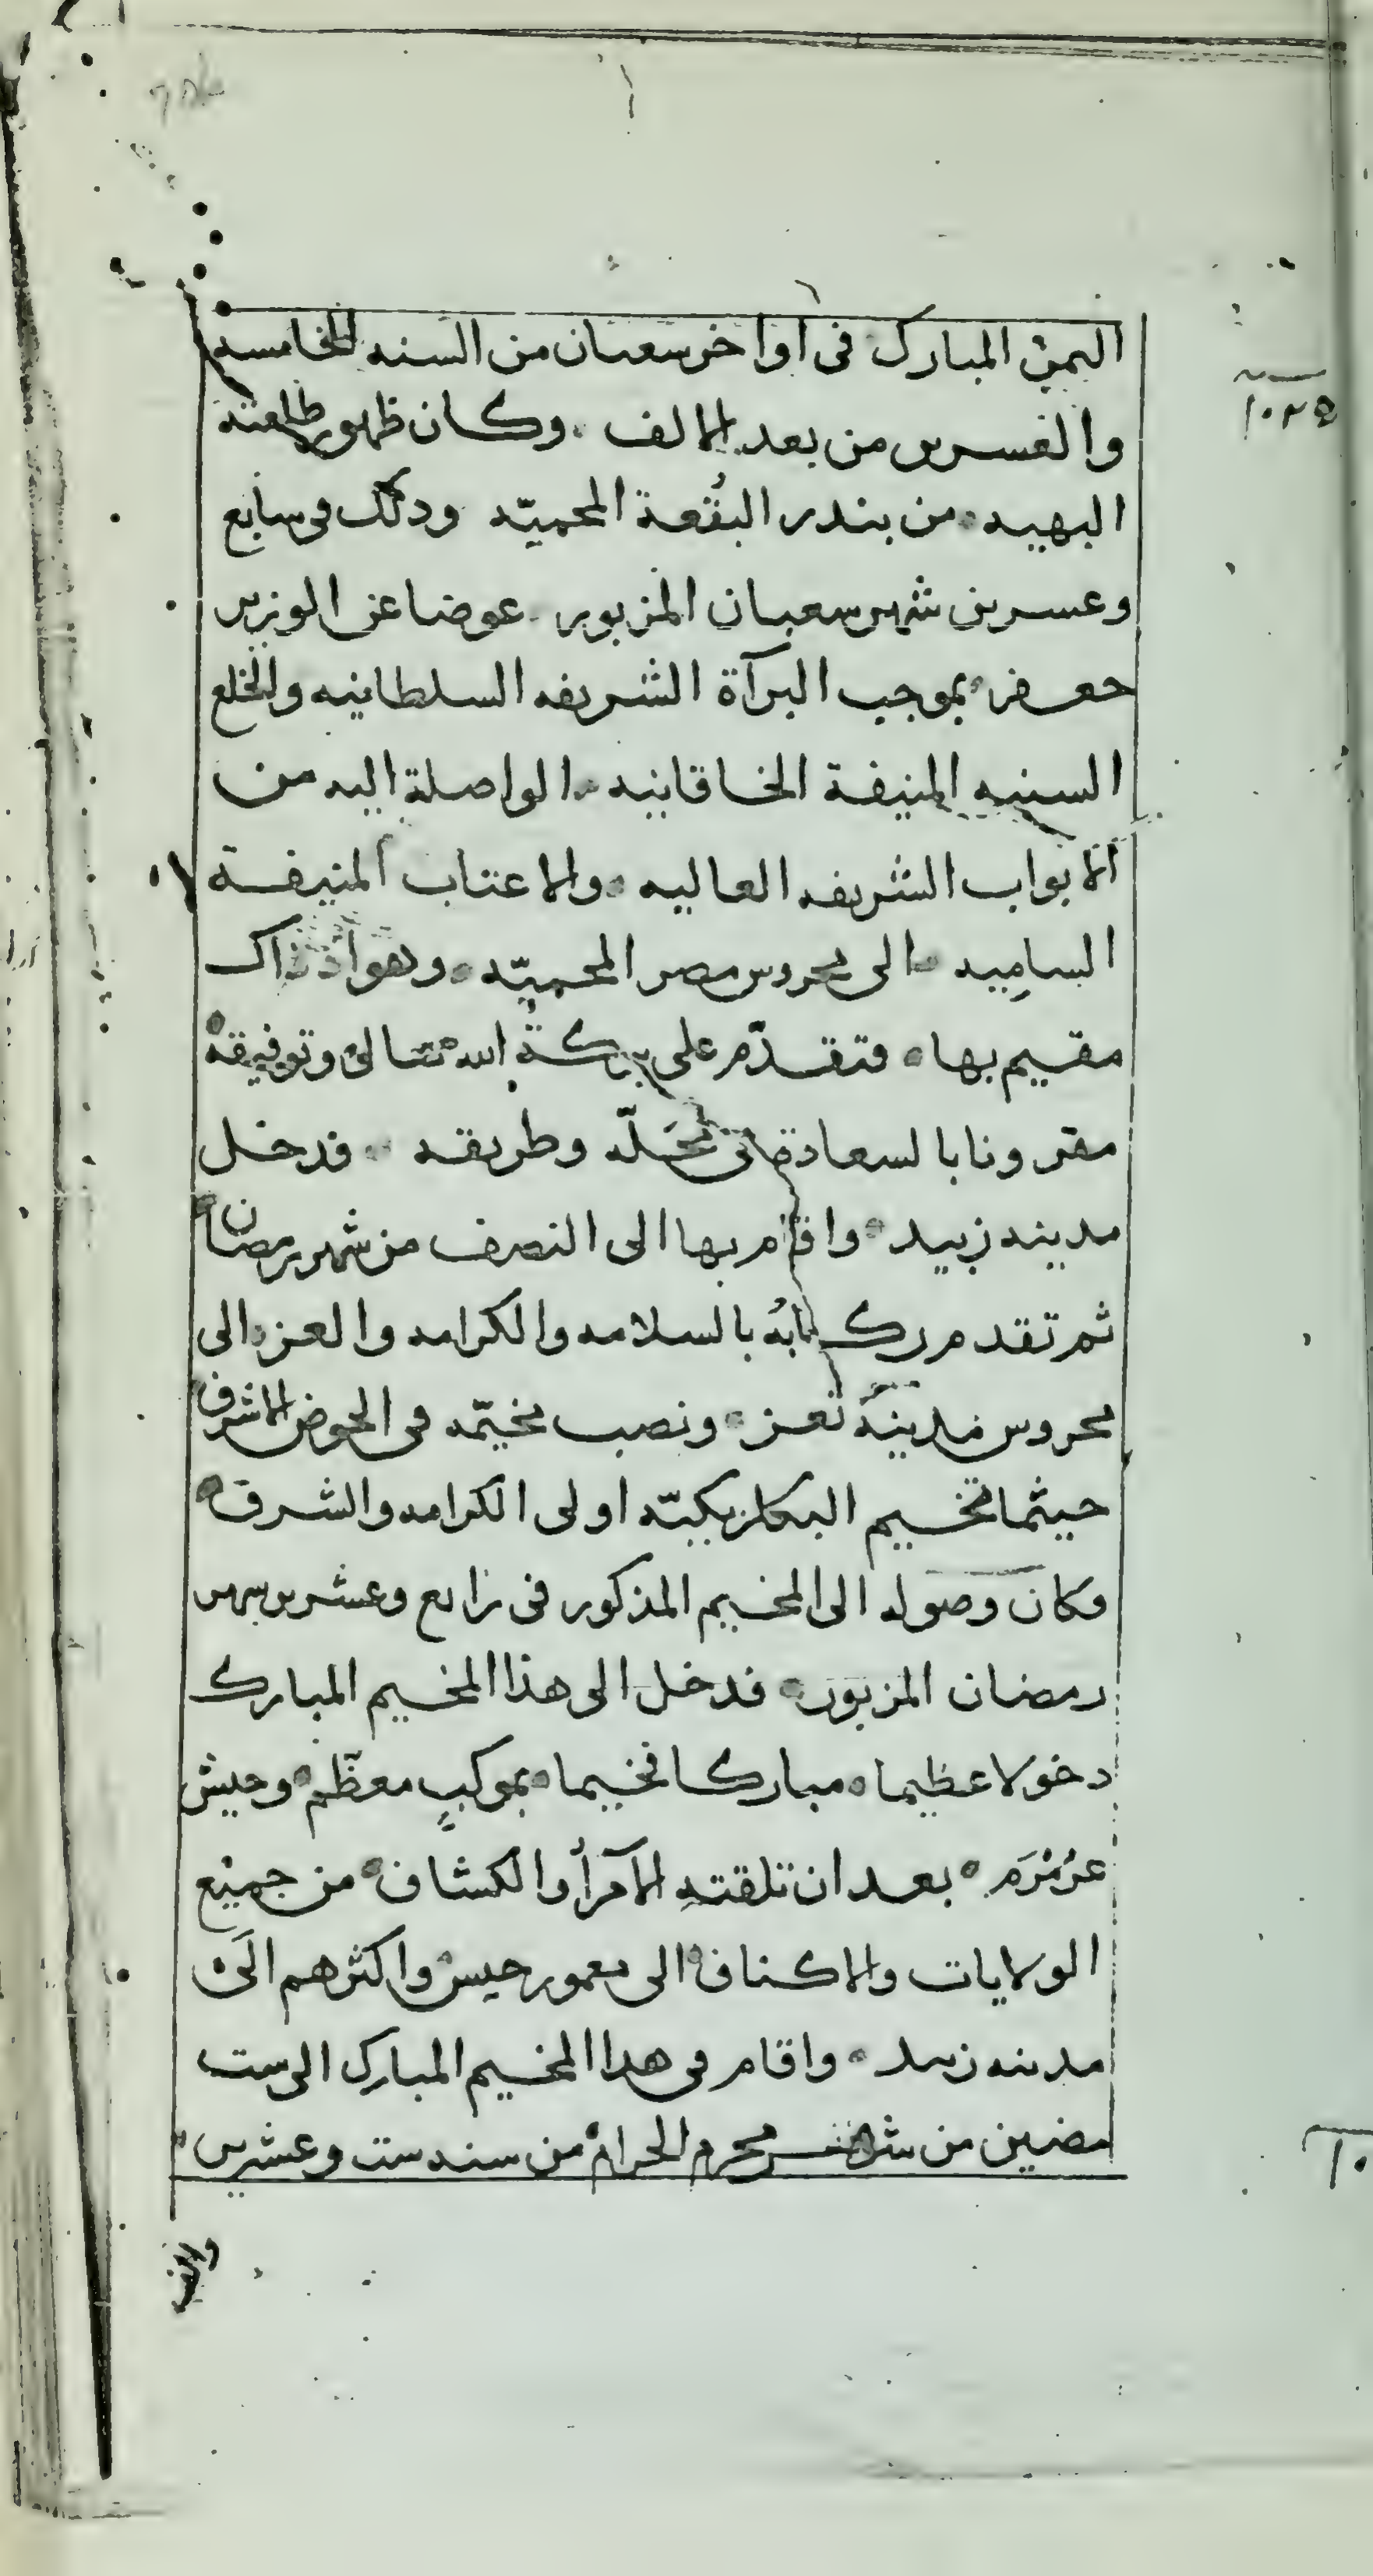 اليمن المبارك في اواخر شعبان من السنه الخامسه
والعشرين من بعد الالف وكان ظهور طلعته
١٠٢٥
البهيه من بندر البُقعة المحميّه وذلك في سابع
وعشرين شهر شعبان المزبور عوضا عن الوزير
جعفر بموجب البرآة الشريفه السلطانيه والخلع
السنيه المنيفة الخاقانيه الواصلة اليه من
الابواب الشريفه العاليه والاعتاب المنيفة
الساميه الى محروس مصر المحميّه وهو اذ ذاك
مقيم بها فتقدّم على بركة الله تعالى وتوفيقه
مقرونا بالسعادة في محَلّه وطريقه فدخل
مدينه زبيد واقام بها الى النصف من شهر رمضان
ثم تقدم ركابُه بالسلامه والكرامه والعز الى
محروس مدينة تعز ونصب مخيّمه في الحوض الاشرف
حيثما تخييم البكلربكيّه اولى الكرامه والشرف
وكان وصوله الى المخيم المذكور في رابع وعشرين شهر
رمضان المزبور فدخل الى هذا المخيم المبارك
دخولا عظيما مباركا فخيما بموكبٍ معظّم وجيش
عرمرم بعد ان تلقته الامرآ والكشاف من جميع
الولايات والاكناف الى معمور حيس واكثرهم الى
مدينه زبيد واقام في هذا المخيم المبارك الى ست
مضين من شهر محرم الحرام من سنه ست وعشرين
والف